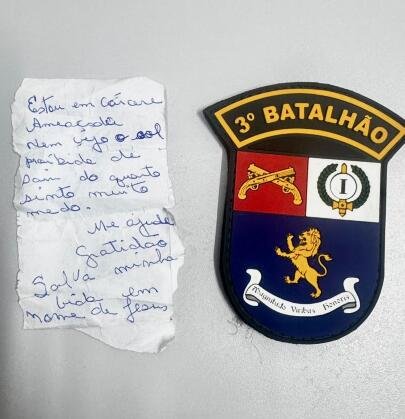 Estou em Cárcare
Ameaçada
nem vejo o sol
proibida de
sair do quarto
sinto muito
medo.
Me ajuda
gratidao
Salva minha
vida em
nome de Jesus
3º BATALHÃO
I
Virtus Honoris